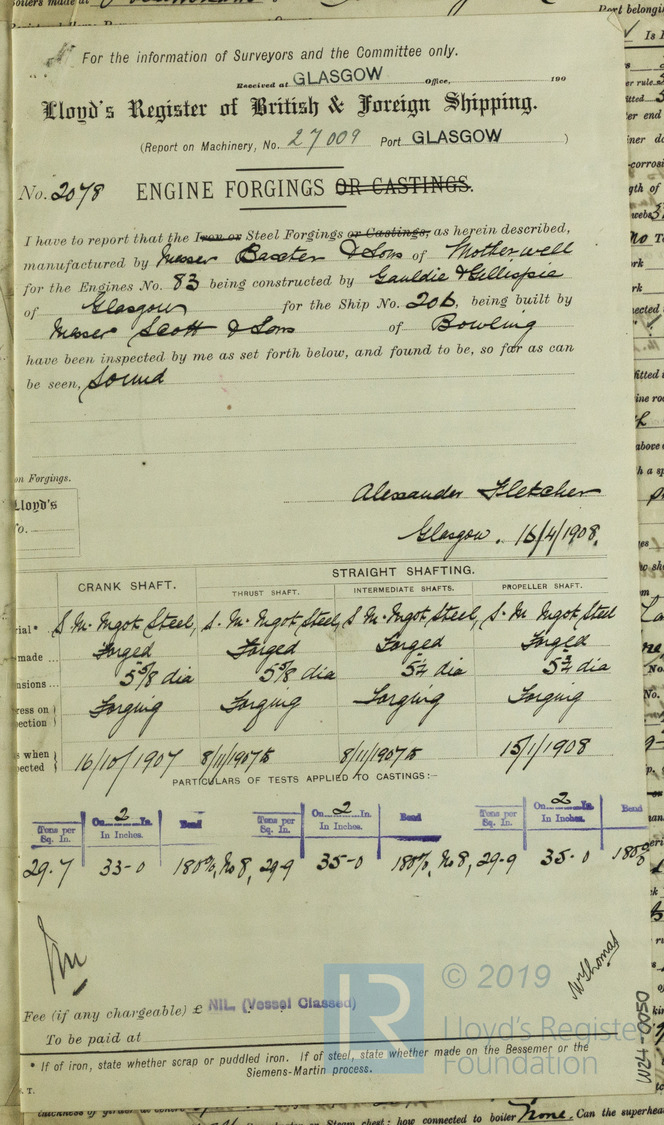 For the information of Surveyors and the Committee only.
Received at GLASGOW Office, 190
Lloyd's Register of British & Foreign Shipping.
(Report on Machinery, No. 27009 Port GLASGOW )
No. 2078 ENGINE FORGINGS OR CASTINGS.
I have to report that the Iron or Steel Forgings or Castings, as herein described,
manufactured by Messer Baxter & Sons of Motherwell
for the Engines No. 83 being constructed by Gauldie & Gillispie
of Glasgow for the Ship No. 206, being built by
Messer Scott & Sons of Bowling
have been inspected by me as set forth below, and found to be, so far as can
be seen, Sound
on Forgings.
Lloyd's
o.
Alexander Fletcher
Glasgow. 16/4/1908.
STRAIGHT SHAFTING.
CRANK SHAFT. THRUST SHAFT. INTERMEDIATE SHAFTS. PROPELLER SHAFT.
rial* S. M. Ingot Steel, S. M. Ingot Steel, S. M. Ingot Steel, S. M. Ingot Steel
made ... Forged Forged Forged Forged
nsions ... 5 5/8 dia 5 5/8 dia 5 1/4 dia 5 3/4 dia
ress on
ection Forging Forging Forging Forging
s when
pected 16/10/1907 8/11/1907 8/11/1907 15/1/1908
PARTICULARS OF TESTS APPLIED TO CASTINGS:—
Tons per Sq. In. On 2 In. In Inches. Bend Tons per Sq. In. On 2 In. In Inches. Bend Tons per Sq. In. On 2 In. In Inches. Bend
29.7 33-0 180%, No 8, 29.9 35-0 180%, No 8, 29-9 35-0 180
W Thomas
Fee (if any chargeable) £ NIL. (Vessel Classed)
To be paid at
* If of iron, state whether scrap or puddled iron. If of steel, state whether made on the Bessemer or the
Siemens-Martin process.
T.
© 2019
Lloyd's Register
Foundation
W24-0050
thickness of girder at centre
Steam chest: how connected to boiler None. Can the superhea